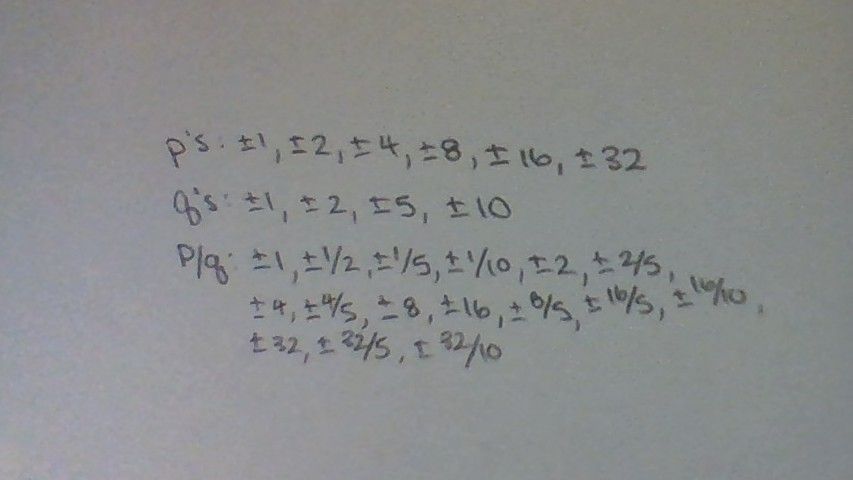 p's: ±1, ±2, ±4, ±8, ±16, ±32
q's: ±1, ±2, ±5, ±10
P/q: ±1, ±1/2, ±1/5, ±1/10, ±2, ±2/5,
±4, ±4/5, ±8, ±16, ±8/5, ±16/5, ±16/10,
±32, ±32/5, ±32/10